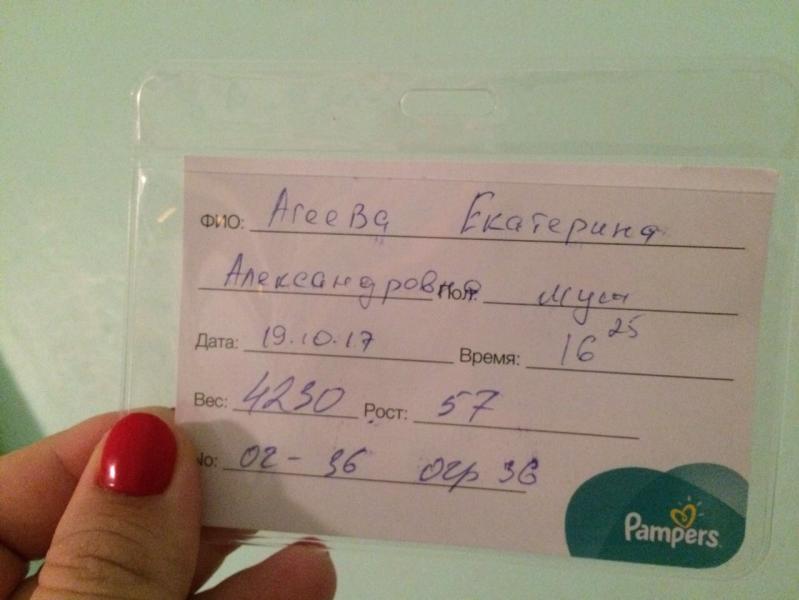 ФИО: Агеева Екатерина
Александровна Пол: муж
Дата: 19.10.17 Время: 16 25
Вес: 4230 Рост: 57
No: ОГ - 36 огр 36
Pampers